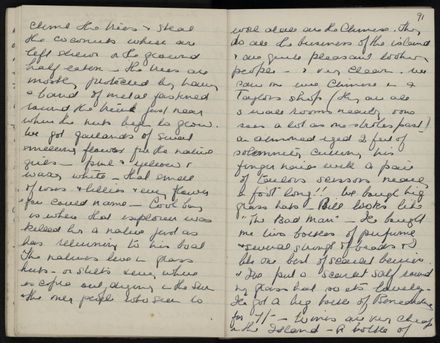 climb the trees & steal
the coconuts whose are
left strewn on the ground
half eaten - the trees are
mostly protected by having
a band of metal fastened
round the trunk just near
where the nuts begin to grow.
We got garlands of sweet
smelling flowers from the native
girls - pink & yellow &
waxy white - that smell
of roses & lillies & every flower
you could name - Cook bay
is where that explorer was
killed by a native just as
he was returning to his boat
The natives live in grass
huts - or sheds & every where
is copra out drying in the sun
& the only people who seem to
91
work alone are the Chinese. They
do all the business of the island
& are quite pleasant looking
people - & very clean. We
saw one wee Chinese in a
Taylors shop (they are all
small rooms nearly one
sees a lot as one strolls past)
an almond eyed 2 ft of
solemnity cutting his
finger nails with a pair
of Tailors scissors nearly
a foot long!! We bought big
grass hats - Bill looks like
"The Bad Man" - He bought
me two bottles of perfume
& several strings of beads & I
like one best of scarlet berries.
& I've put a scarlet scarf round
my grass hat so its lovely.
He got a big bottle of Benedictine
for 7/- - Wines are very cheap
in the Island - A bottle of